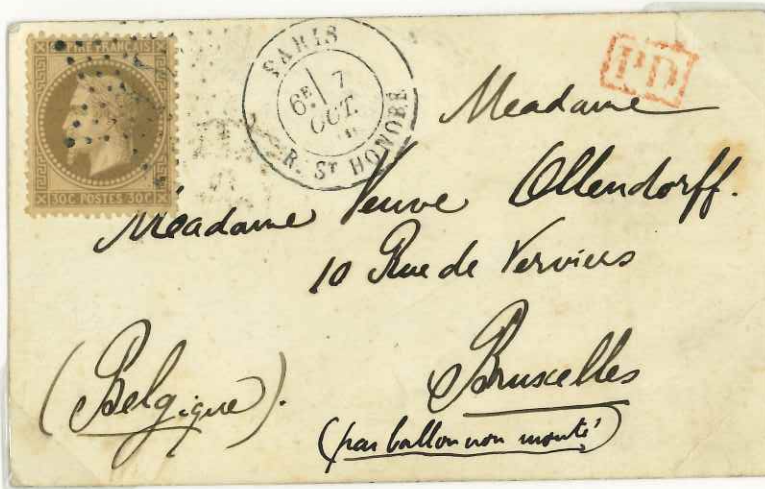 EMPIRE FRANÇAIS
30C POSTES 30C
PARIS
6E 7
OCT.
R. ST HONORÉ
PD
Madame
Madame Veuve Ollendorff.
10 Rue de Verviers
Bruxelles
(Belgique).
(par ballon non monté)